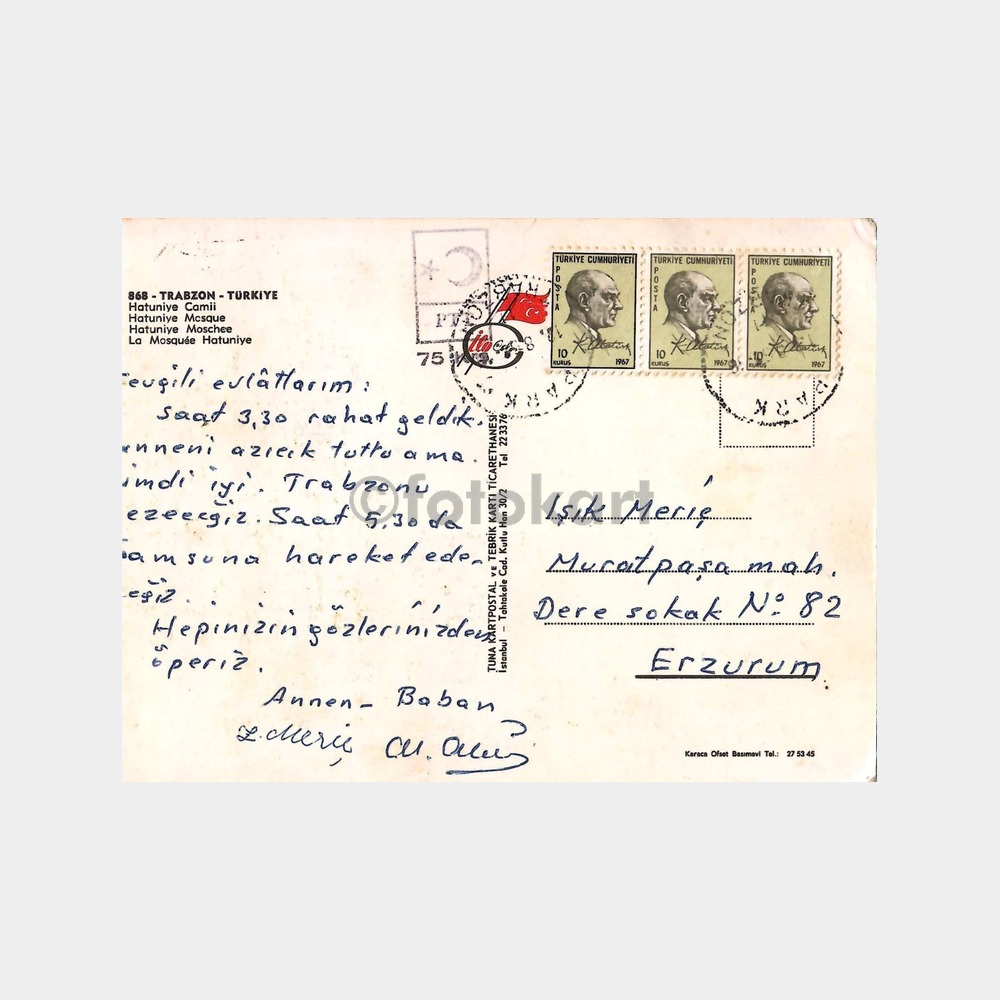 868 - TRABZON - TÜRKİYE
Hatuniye Camii
Hatuniye Mosque
Hatuniye Moschee
La Mosquée Hatuniye
PTT
75 Krş.
TÜRKİYE CUMHURİYETİ
POSTA
10
KURUŞ
1967
TÜRKİYE CUMHURİYETİ
POSTA
10
KURUŞ
1967
TÜRKİYE CUMHURİYETİ
POSTA
10
KURUŞ
1967
PARK
PARK
evgili evlâtlarım:
Saat 3,30 rahat geldik.
nneni azıcık tuttu ama.
imdi iyi. Trabzonu
ezeceğiz. Saat 5,30 da
amsuna hareket ede-
ceğiz.
Hepinizin gözlerinizden
öperiz.
Annen - Baban
Z. Meriç
TUNA KARTPOSTAL ve TEBRİK KARTI TİCARETHANESİ
İstanbul - Tahtakale Cad. Kutlu Han 30/2 Tel 223376
©fotokart
Işık Meriç
Muratpaşa mah.
Dere sokak No 82
Erzurum
Karaca Ofset Basımevi Tel.: 27 53 45